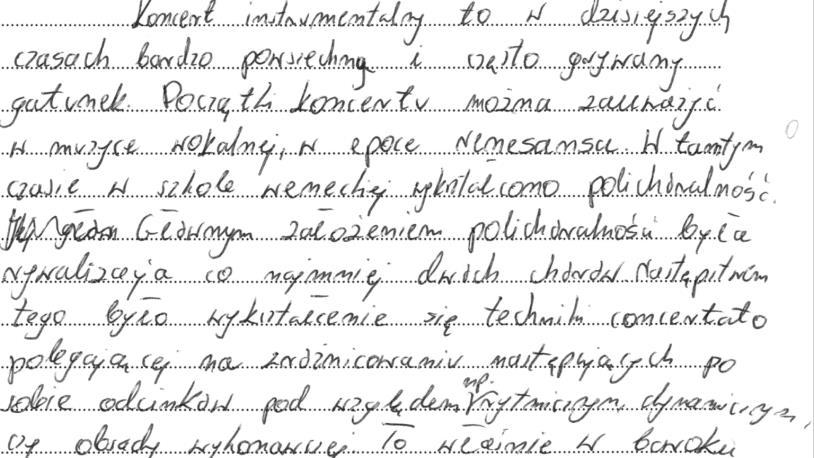 Koncert instrumentalny to w dzisiejszych
czasach bardzo powsiechny i często grywany
gatunek. Początki koncertu można zauważyć
w muzyce wokalnej, w epoce renesansu. W tamtym
czasie w szkole weneckiej wykształcono polichóralność.
Głównym założeniem polichóralności była
rywalizacja co najmniej dwóch chórów. Następstwem
tego było wykształcenie się techniki concertato
polegającej na zróżnicowaniu następujących po
sobie odcinków pod względem np. rytmicznym, dynamicznym,
czy obsady wykonawczej. To właśnie w baroku